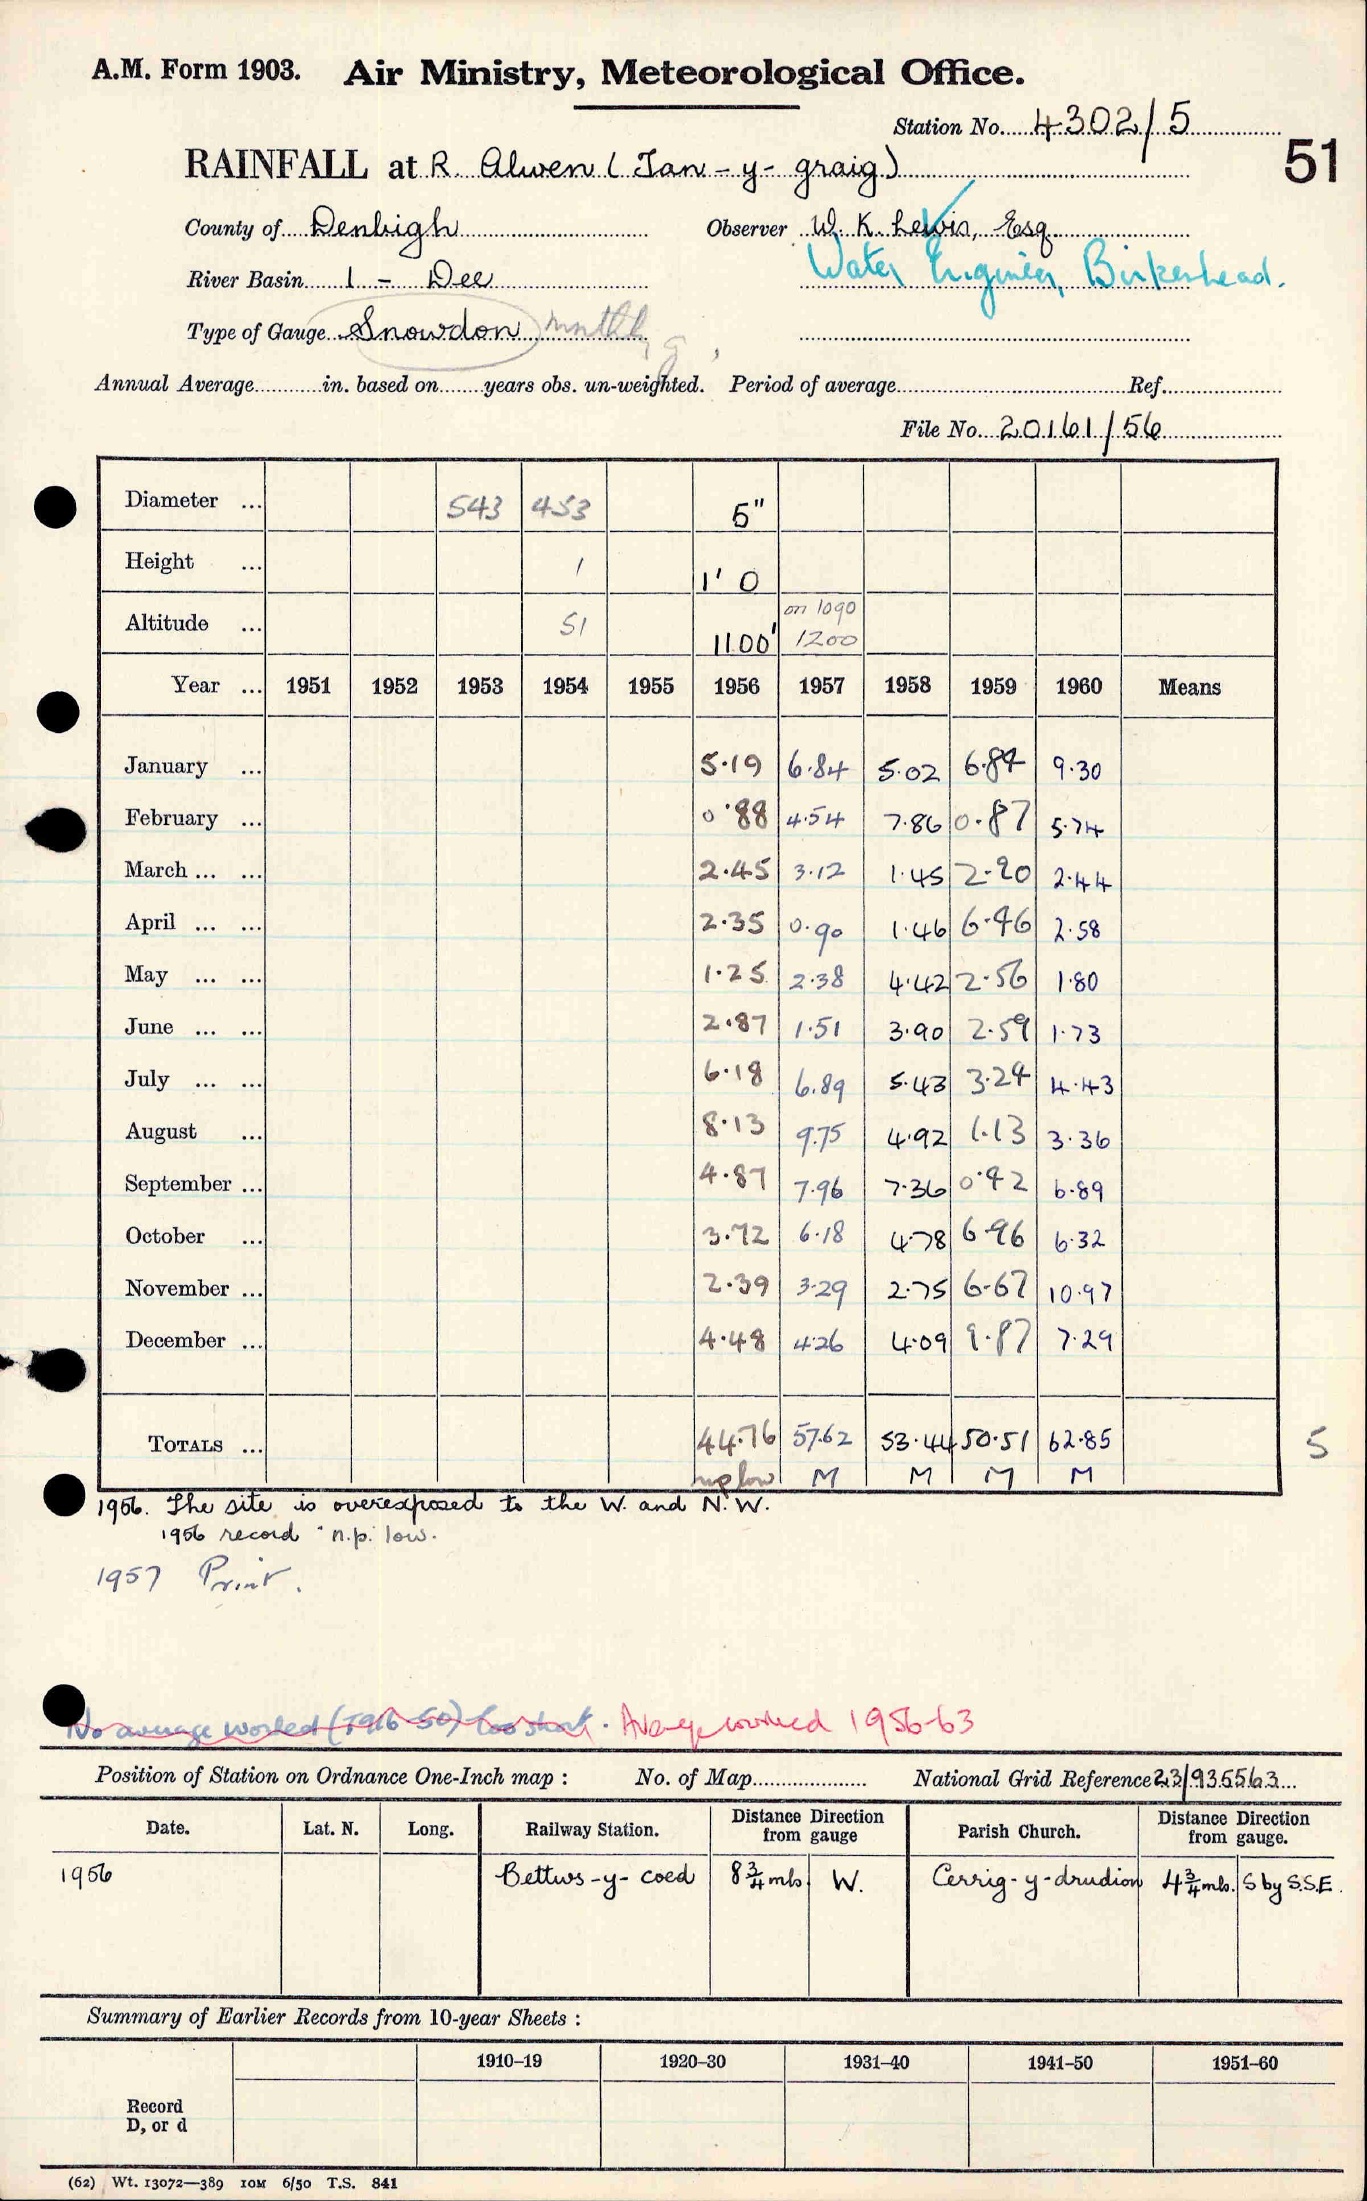 A.M. Form 1903. Air Ministry, Meteorological Office.
Station No. 4302/5
51
RAINFALL at R. Alwen (Tan-y-graig)
County of Denbigh Observer W. K. Lewis, Esq.
River Basin 1 - Dee Water Engineer, Birkenhead.
Type of Gauge Snowdon monthly
Annual Average in. based on years obs. un-weighted. Period of average Ref.
File No. 20161/56
Diameter ... 543 453 5"
Height ... 1 1' 0
Altitude ... 51 1100' on 1090 1200
Year ... 1951 1952 1953 1954 1955 1956 1957 1958 1959 1960 Means
January ... 5.19 6.84 5.02 6.84 9.30
February ... 0.88 4.54 7.86 0.87 5.74
March ... ... 2.45 3.12 1.45 2.90 2.44
April ... ... 2.35 0.90 1.46 6.46 2.58
May ... ... 1.25 2.38 4.42 2.56 1.80
June ... ... 2.87 1.51 3.90 2.59 1.73
July ... ... 6.18 6.89 5.43 3.24 4.43
August ... 8.13 9.75 4.92 1.13 3.36
September ... 4.87 7.96 7.36 0.42 6.89
October ... 3.72 6.18 4.78 6.96 6.32
November ... 2.39 3.29 2.75 6.67 10.97
December ... 4.48 4.26 4.09 9.87 7.29
TOTALS ... 44.76 57.62 53.44 50.51 62.85 5
np low M M M M
1956. The site is overexposed to the W. and N.W.
1956 record n.p. low.
1957 Print.
No average worked (1916-50) too short. Average worked 1956-63
Position of Station on Ordnance One-Inch map : No. of Map National Grid Reference 23/935563
Date. Lat. N. Long. Railway Station. Distance Direction from gauge Parish Church. Distance Direction from gauge.
1956 Bettws-y-coed 8¾ mls W. Cerrig-y-drudion 4¾ mls. S by S.S.E.
Summary of Earlier Records from 10-year Sheets :
1910–19 1920–30 1931–40 1941–50 1951–60
Record
D, or d
(62) Wt. 13072—389 10M 6/50 T.S. 841